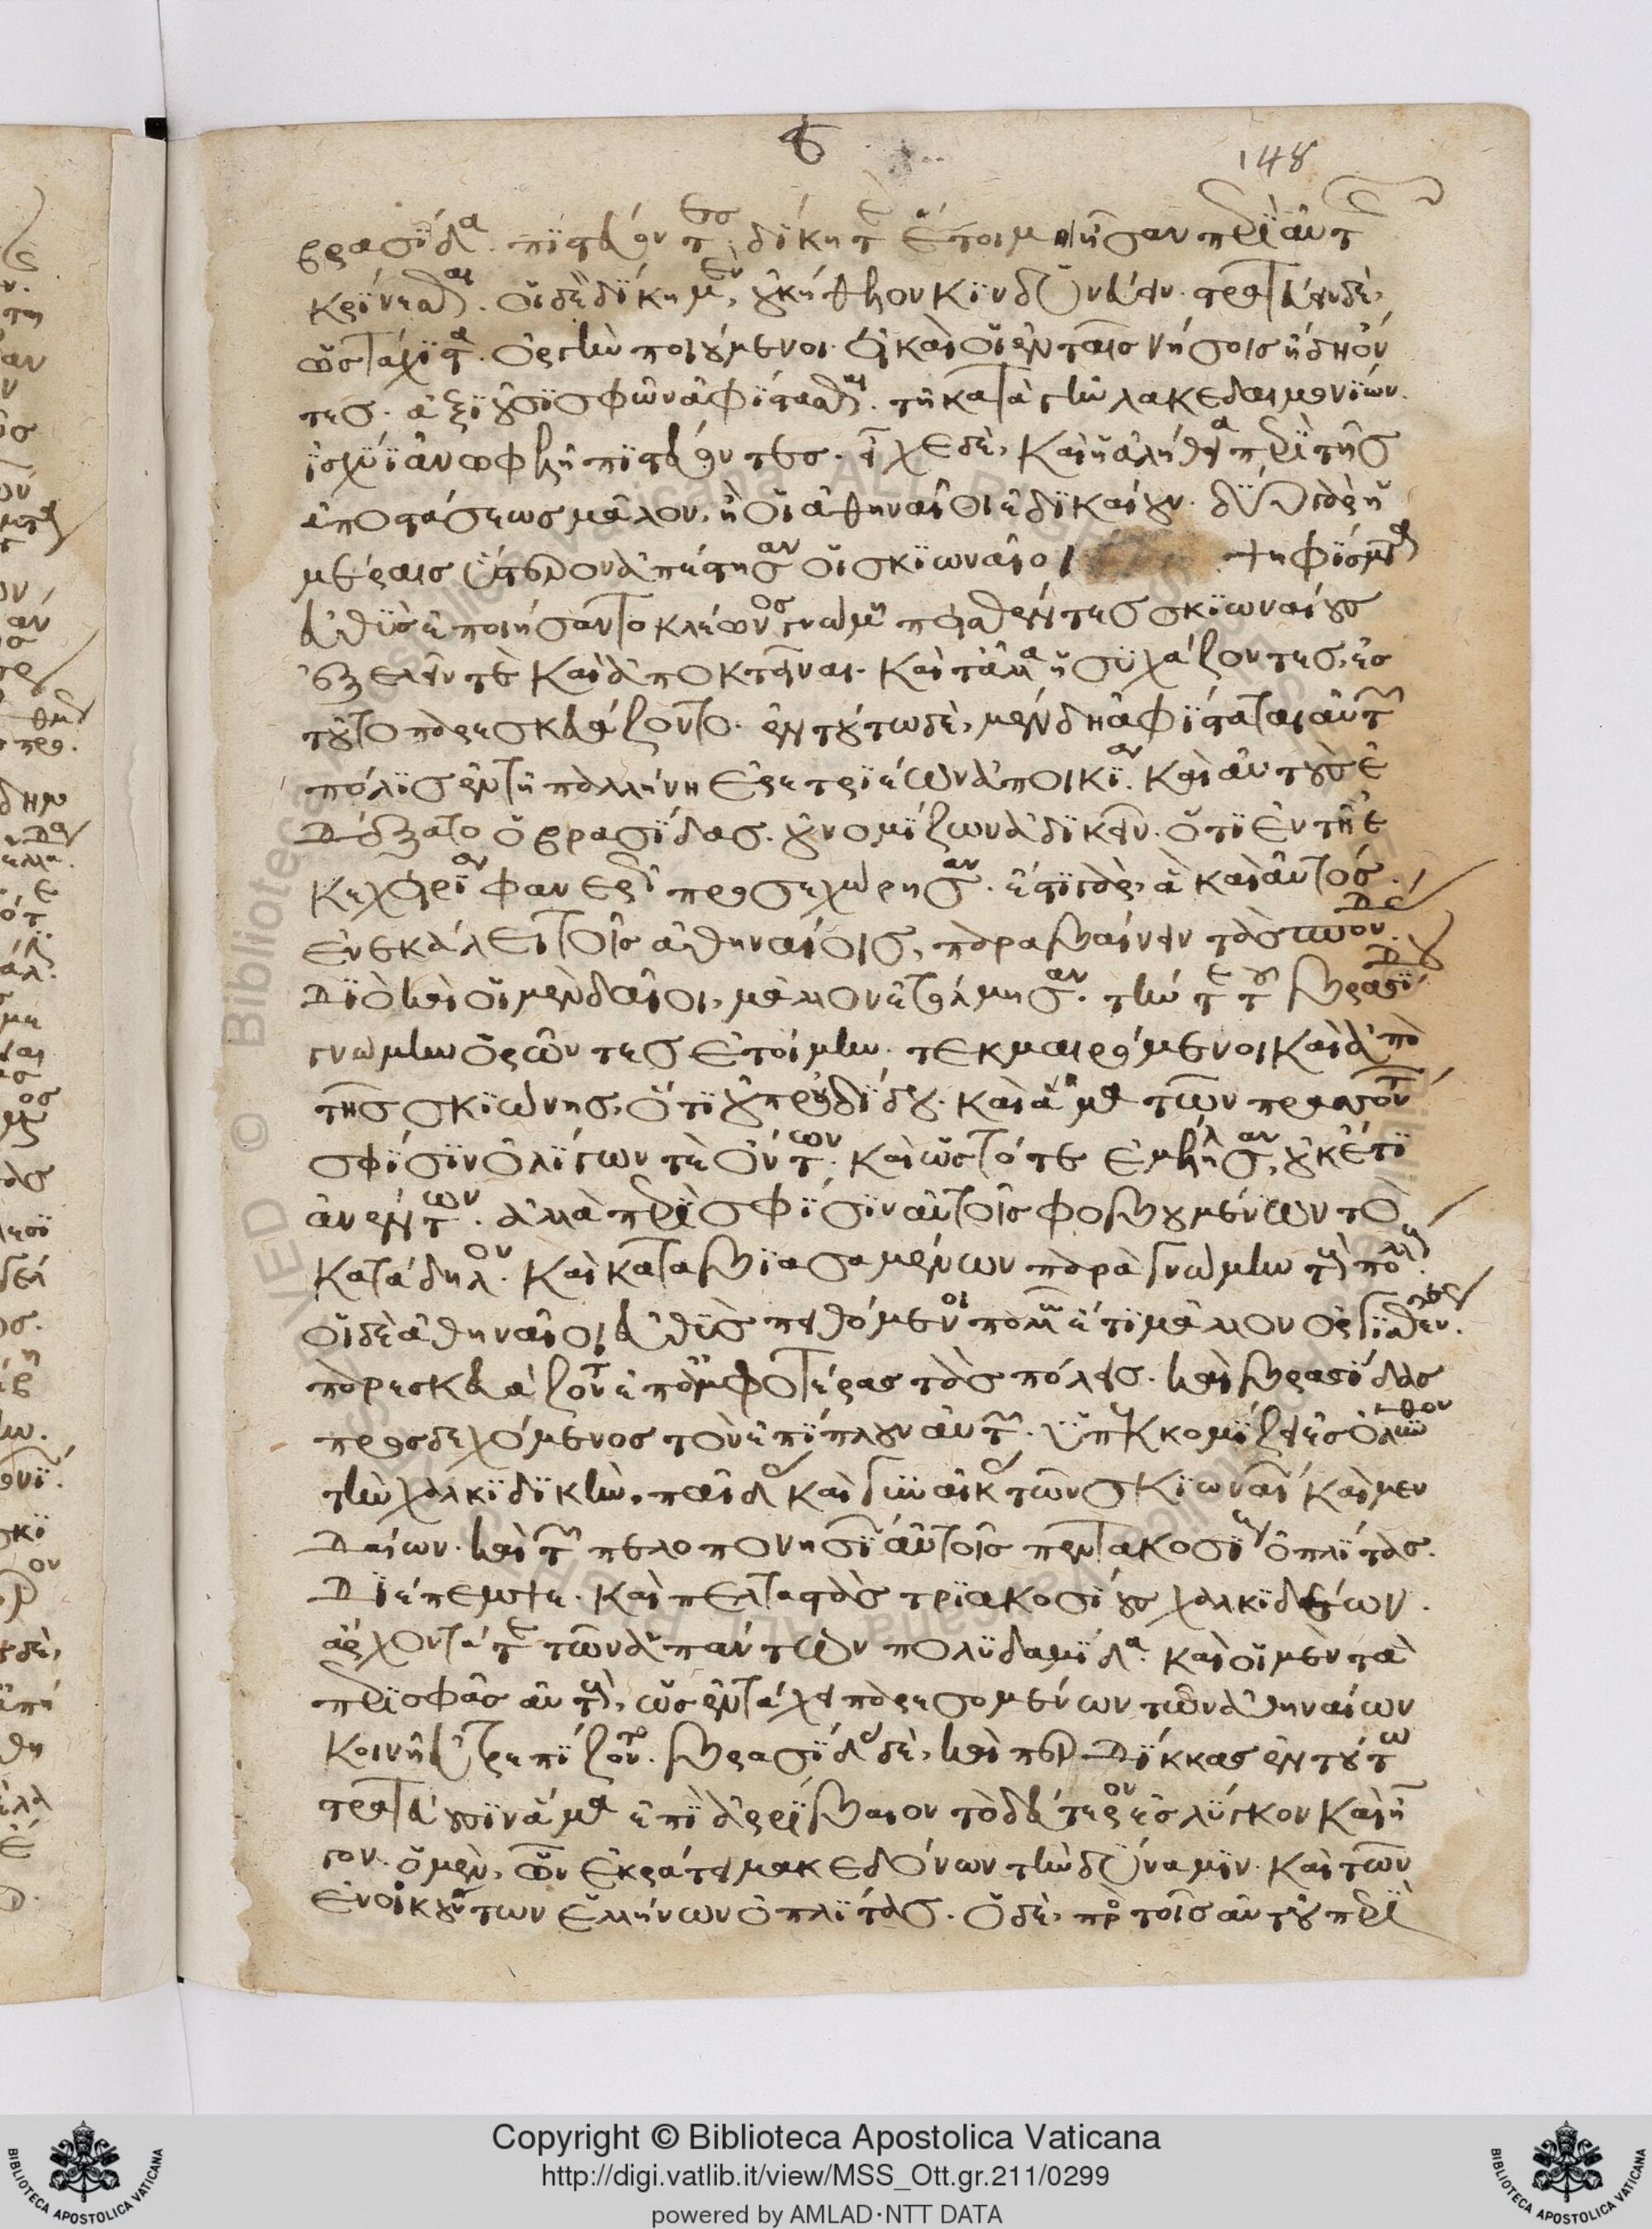 148
βρασίδα πιστεύοντες, δίκη τε ἕτοιμοι ἦσαν περὶ αὐτῆς
κρίνεσθαι. οἱ δὲ δίκη μὲν, οὐκ ἤθελον κινδυνεύειν. στρατεύειν δὲ,
ὡς τάχιστα. ὀργὴν ποιούμενοι. εἰ καὶ οἱ ἐν ταῖς νήσοις ἤδη ὄν
τες. ἀξιοῦσι σφῶν ἀφίστασθαι. τῇ κατὰ γῆν λακεδαιμονίων
ἰσχύϊ ἀνωφελῆ πιστεύοντες. εἶχε δὲ, καὶ ἡ ἀλήθεια περὶ τῆς
ἀποστάσεως μᾶλλον, ἢ οἱ ἀθηναῖοι ἐδικαίουν. δύο γὰρ ἡ
μέραις ὕστερον ἀπέστησαν οἱ σκιωναῖοι ψήφισμα
εὐθὺς ἐποιήσαντο κλέωνος γνώμῃ πεισθέντες σκιωναίους
ἐξελεῖν τὲ καὶ ἀποκτεῖναι. καὶ τἄλλα ἡσυχάζοντες, ἐς
τοῦτο παρεσκευάζοντο. ἐν τούτω δὲ, μένδη ἀφίσταται αὐτῶν
πόλις ἐν τῇ παλλήνη ἐρετριέων ἀποικία. καὶ αὐτοὺς ἐ
δέξατο ὁ βρασίδας. οὐ νομίζων ἀδικεῖν. ὅτι ἐν τῇ ἐ
κεχειρίᾳ φανερῶς προσεχώρησαν. ἔστι γὰρ, ἃ καὶ αὐτὸς
ἐνεκάλει τοῖς ἀθηναίοις, παραβαίνειν τὰς σπονδάς
διὸ καὶ οἱ μενδαῖοι, μᾶλλον ἐτόλμησαν. τήν τε τοῦ βρασίδου
γνώμην ὁρῶντες ἑτοίμην. τεκμαιρόμενοι καὶ ἀπὸ
τῆς σκιώνης, ὅτι οὐ προὐδίδου. καὶ ἅμα τῶν πρασσόντων
σφίσιν ὀλίγων τὲ ὄντων. καὶ ὡς τότε ἐμέλλησαν, οὐκέτι
ἀνέντων. ἀλλὰ περὶ σφίσιν αὐτοῖς φοβουμένων τὸ
κατάδηλον. καὶ καταβιασαμένων παρὰ γνώμην τοὺς πολλούς.
οἱ δὲ ἀθηναῖοι εὐθὺς πυθόμενοι πολλῷ ἔτι μᾶλλον ὀργισθέντες
παρεσκευάζοντο ἐπ' ἀμφοτέρας τὰς πόλεις. καὶ βρασίδας
προσδεχόμενος τὸν ἐπίπλουν αὐτῶν. ὑπεκκομίζει ἐς ὄλυνθον
τὴν χαλκιδικὴν, παῖδας καὶ γυναῖκας τῶν σκιωναίων καὶ μεν
δαίων. καὶ τῶν πελοποννησίων αὐτοῖς πεντακοσίους ὁπλίτας.
διέπεμψε. καὶ πελταστὰς τριακοσίους χαλκιδέων.
ἄρχοντά τε τῶν ἁπάντων πολυδαμίδα. καὶ οἱ μὲν τὰ
περὶ σφᾶς αὐτοὺς, ὡς ἐν τάχει παρεσομένων τῶν ἀθηναίων
κοινῇ εὐτρεπίζοντο. βρασίδας δὲ, καὶ περδίκκας ἐν τούτω
στρατεύουσιν ἅμα ἐπὶ ἀρριβαῖον τὸ δεύτερον ἐς λύγκον καὶ ἦ
γον. ὁ μὲν, ὧν ἐκράτει μακεδόνων τὴν δύναμιν. καὶ τῶν
ἐνοικούντων ἑλλήνων ὁπλίτας. ὁ δὲ, πρὸς τοῖς αὐτοῦ περι
Copyright © Biblioteca Apostolica Vaticana
http://digi.vatlib.it/view/MSS_Ott.gr.211/0299
powered by AMLAD·NTT DATA
BIBLIOTECA APOSTOLICA VATICANA
BIBLIOTECA APOSTOLICA VATICANA